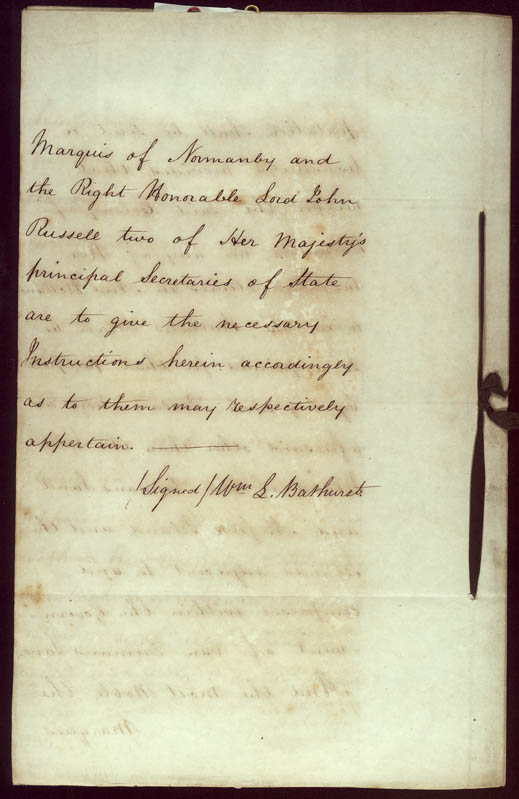 Marquis of Normanby and
the Right Honorable Lord John
Russell two of Her Majesty's
principal Secretaries of State
are to give the necessary
Instructions herein accordingly
as to them may respectively
appertain. ———
(Signed) Wm L. Bathurst